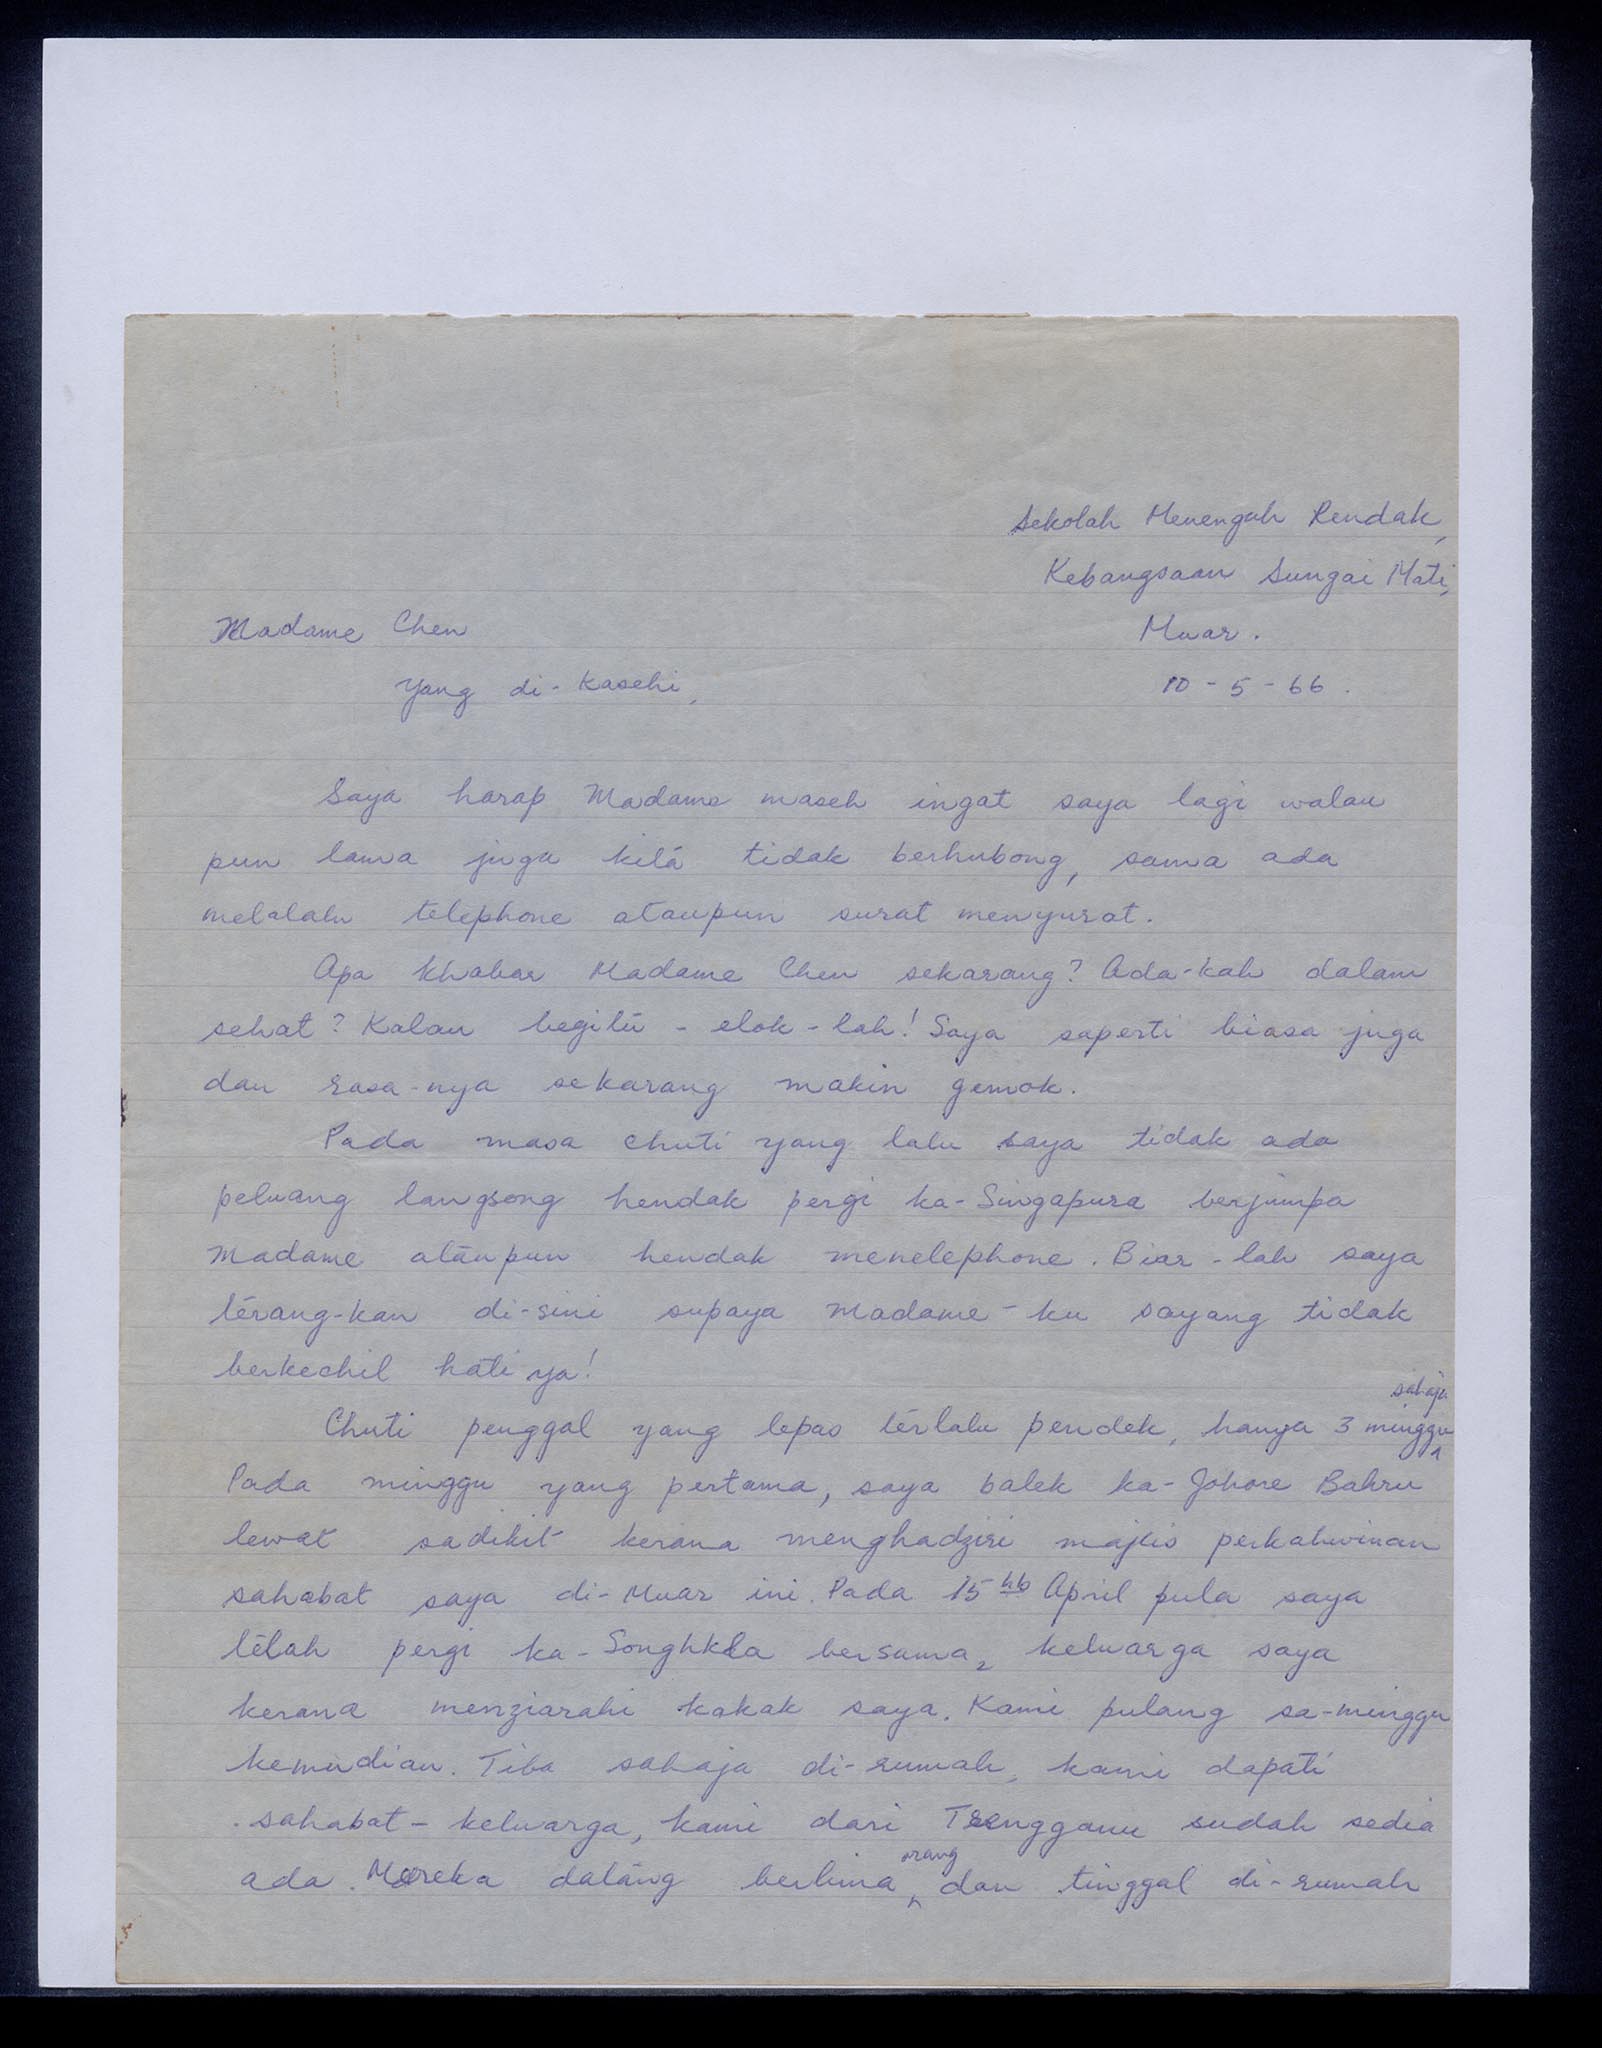 Sekolah Menengah Rendah,
Kebangsaan Sungai Mati,
Muar.
10-5-66.
Madame Chen
yang di-kasehi,
Saya harap Madame maseh ingat saya lagi walau
pun lama juga kita tidak berhubong, sama ada
melalalu telephone ataupun surat menyurat.
Apa khabar Madame Chen sekarang? Ada-kah dalam
sehat? Kalau begitu - elok-lah! Saya saperti biasa juga
dan rasa-nya sekarang makin gemok.
Pada masa chuti yang lalu saya tidak ada
peluang langsong hendak pergi ka-Singapura berjumpa
Madame ataupun hendak menelephone. Biar-lah saya
terang-kan di-sini supaya Madame-ku sayang tidak
berkechil hati ya!
Chuti penggal yang lepas terlalu pendek, hanya 3 minggu sahaja
Pada minggu yang pertama, saya balek ka-Johore Bahru
lewat sadikit kerana menghadziri majlis perkahwinan
sahabat saya di-Muar ini. Pada 15hb April pula saya
telah pergi ka-Songhkla bersama2 keluarga saya
kerana menziarahi kakak saya. Kami pulang sa-minggu
kemudian. Tiba sahaja di-rumah, kami dapati
sahabat-keluarga, kami dari Trengganu sudah sedia
ada. Mereka datang berlima orang dan tinggal di-rumah